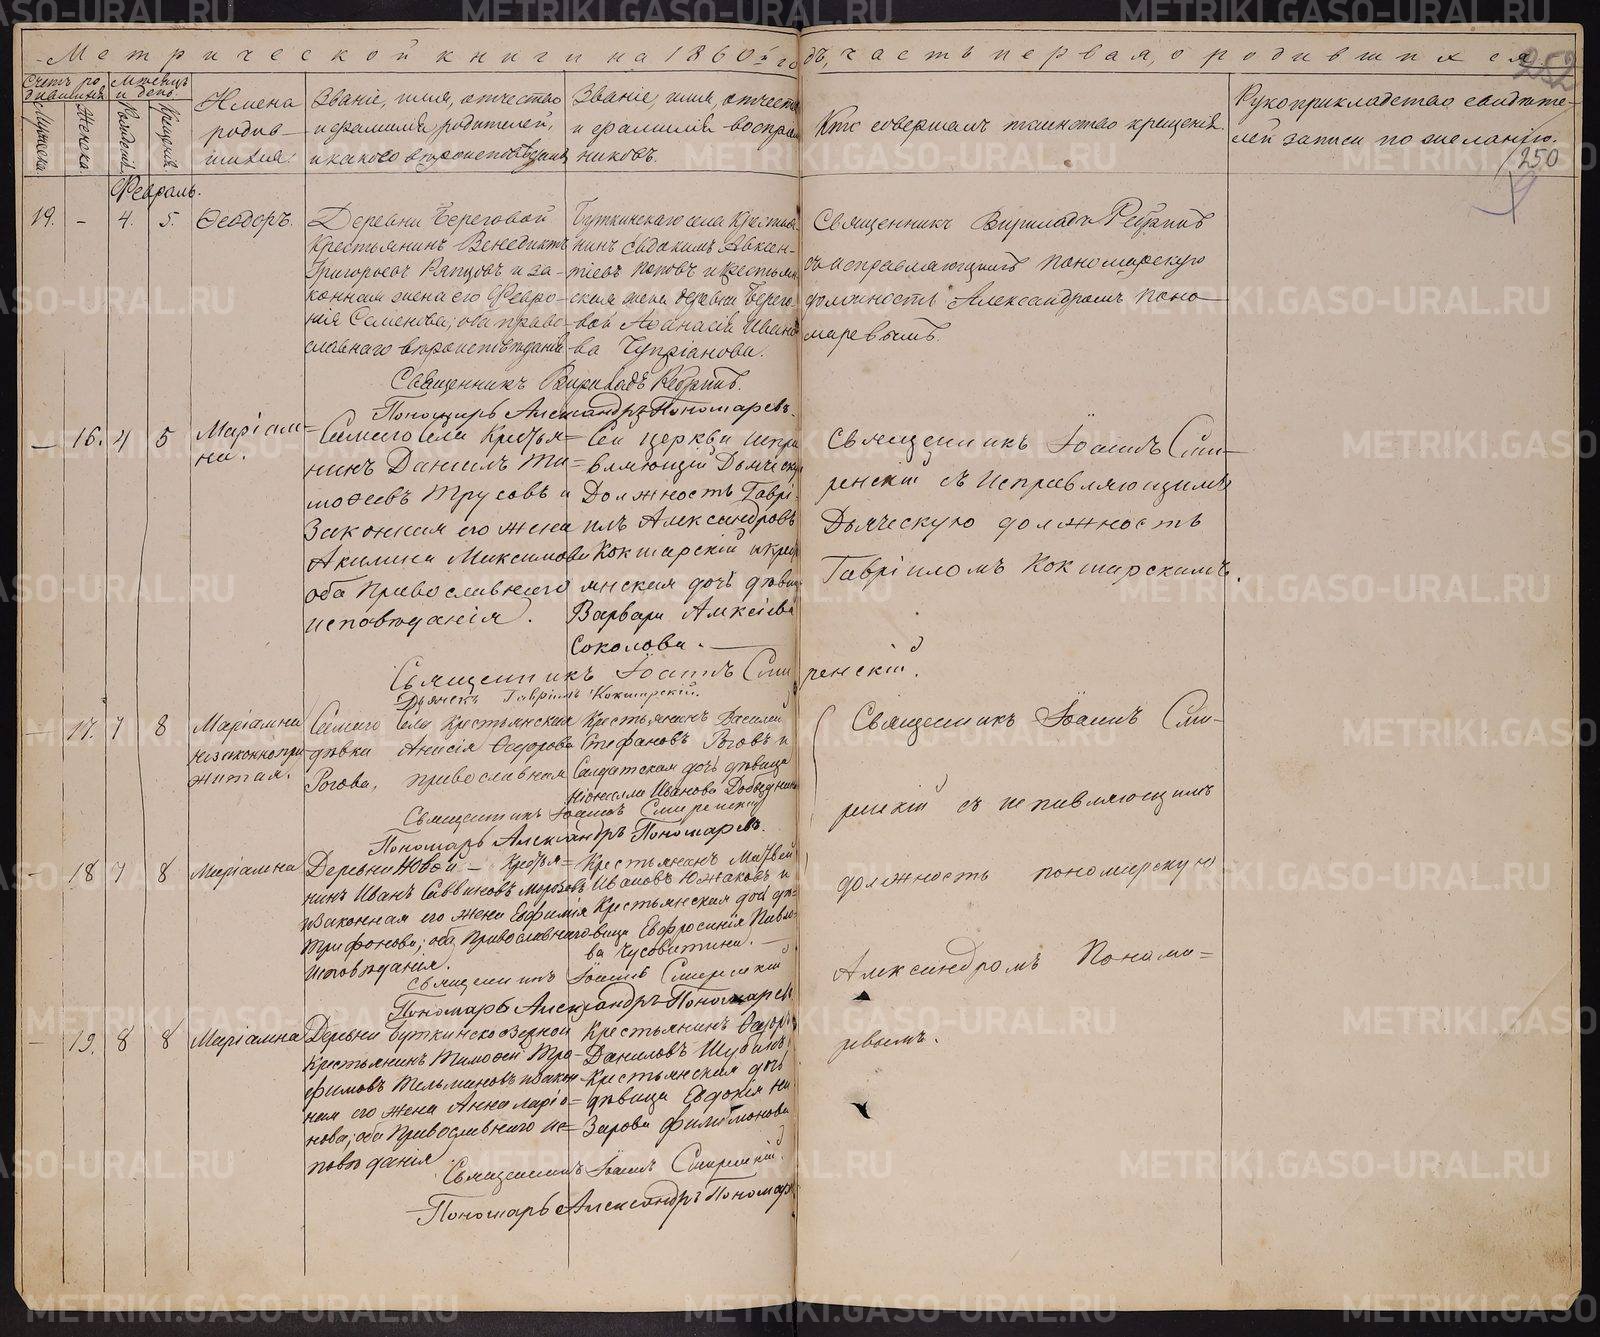 Метрической книги на 1860й годъ, часть первая, о родившихся.
252
Счетъ родившихся
Мужеска
Женска
Мѣсяцъ и день
Рожденія
Крещенія
Имена
родив-
шихся.
Званіе, имя, отчество
и фамилія родителей,
и какого вѣроисповѣданія
Званіе, имя, отчество
и фамилія воспріем
никовъ.
Кто совершалъ таинство крещенія.
Рукоприкладство свидѣте-
лей записи по желанію.
250
Февраль.
19. - 4. 5. Ѳеодоръ.
Деревни Береговой
Крестьянинъ Венедиктъ
Григорьевъ Рапцовъ и за-
конная жена его Февро-
нія Семенова; оба право-
славнаго вѣроисповѣданія
Буткинскаго села Крестья-
нинъ Евдокимъ Авксен-
тіевъ Поповъ и крестьян
ская жена деревни Берего-
вой Аѳанасія Ивано
ва Чупріанова.
Священникъ
съ исправляющимъ пономарскую
должность Александромъ Поно-
маревымъ.
Священникъ
Пономарь Александръ Пономаревъ.
- 16. 4 5 Маріам-
на.
Самаго Села Крестья=
нинъ Даніилъ Ти=
моѳеевъ Трусовъ и
Законная его жена
Акилина Максимова
оба Православнаго
исповѣданія.
Сей церкви испра
вляющій Дьяческу
Должность Гаврі-
илъ Александровъ
Кокшарскій и крест
янская дочь дѣвица
Варвара Алексіева
Соколова.
Священникъ Іоаннъ Сми-
ренскій съ Исправляющимъ
Дьяческую должность
Гавріиломъ Кокшарскимъ.
Священникъ Іоаннъ Смиренскій.
Гавріилъ Кокшарскій.
- 17. 7 8 Маріамна
незаконнопри
житая.
Самаго Села Крестьянская
дѣвка Анисія Ѳедорова
Рогова, православная
Крестьянинъ Василій
Стефановъ Роговъ и
Салдатская дочь дѣвица
Иванова
Священникъ Іоаннъ Смиренскій
Пономарь Александръ Пономаревъ.
Священникъ Іоаннъ Сми-
ренскій съ исправляющимъ
должность пономарскую
Александромъ Понома=
ревымъ.
- 18 7 8 Маріамна
Деревни Крестья=
нинъ Иванъ Саввиновъ Морозовъ
и Законная его жена Евфимія
Трифонова; оба Православнаго
Исповѣданія.
Крестьянинъ Матвей
Ивановъ Южаковъ и
Крестьянская дочь дѣ-
вица Евфросинія Павло-
ва Чусовитина.
Священникъ Іоаннъ Смиренскій
Пономарь Александръ Пономаревъ
- 19. 8 8 Маріамна
Деревни Буткинскоозерной
Крестьянинъ Тимоѳей Тро-
фимовъ Тельминовъ и закон
ная его жена Анна Ларіо=
нова; оба Православнаго ис=
повѣданія.
Крестьянинъ Ѳедоръ
Даниловъ Шубинъ
Крестьянская дочь
дѣвица Евдокія На
зарова Филимонова
Священникъ Іоаннъ Смиренскій.
Пономарь Александръ Пономар
METRIKI.GASO-URAL.RU